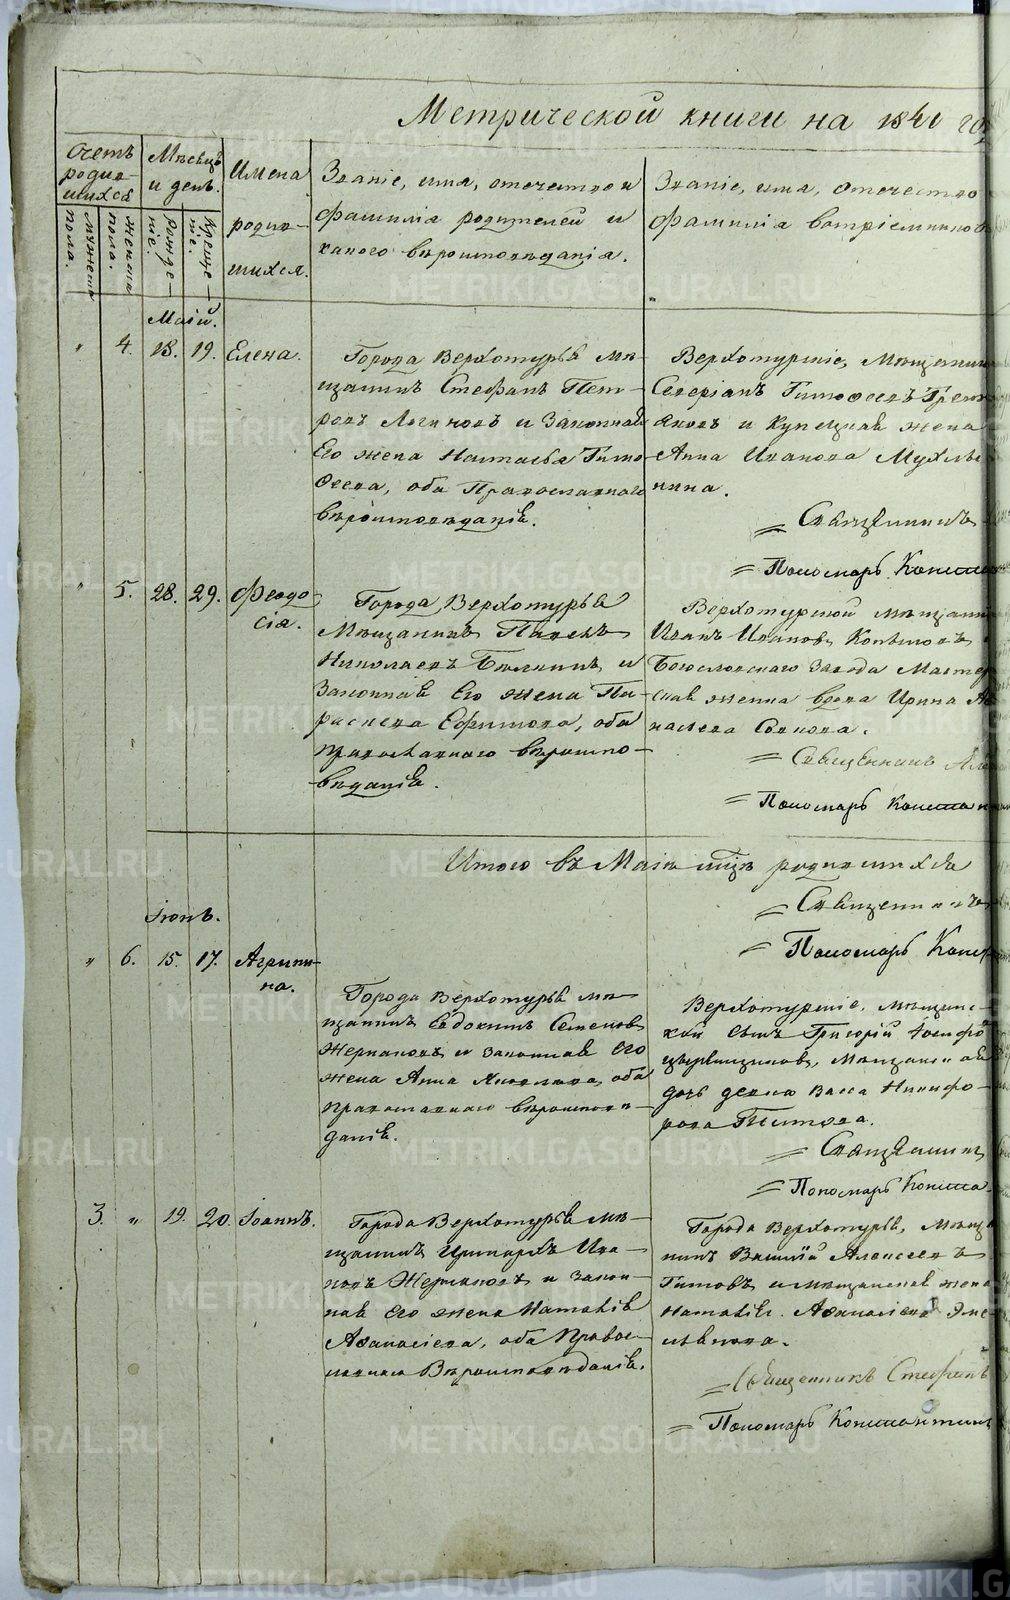 Метрической книги на 1841 го
Счетъ родив- шихся
Мѣсяцъ и день.
Имена родив- шихся.
Званіе, имя, отечество и
фамилія родителей и
какого вѣроисповѣданія.
Званіе, имя, отечество
фамилія воспріемников
мужеска пола.
женска пола.
Рожде- ніе.
Креще- ніе.
Маій.
" 4. 18. 19. Елена.
Города Верхотурья мѣ-
щанинъ Стефанъ Пет-
ровъ Логиновъ и Законная
Его жена Настасья Тимо-
Ѳеева, оба Православнаго
вѣроисповѣданія.
Верхотурскіе, Мѣщанин
Северіанъ Тимоѳеевъ Трет
яковъ и Купецкая жена
Анна Иванова Мухле-
нина.
= Священникъ
= Пономарь Конста
" 5. 28. 29. Феодо
сія.
Города Верхотурья
Мѣщанинъ Павелъ
Николаевъ Бѣлкинъ и
Законная Его жена Па-
раскева Ефимова, оба
православнаго вѣроиспо-
вѣданія.
Верхотурской мѣщани
Иванъ Ивановъ Копыловъ
Богословскаго Завода Масте
ская женка вдова Ирина А
насьева
= Священникъ Але
= Пономарь Констан
Итого въ Маіѣ мцѣ родившихся
= Священникъ
= Пономарь Конс
Іюнь.
" 6. 15. 17. Агрипи-
на.
Города Верхотурья мѣ-
щанинъ Евдокимъ Семеновъ
Жернаковъ и законная Его
жена Анна Яковлева, оба
православнаго вѣроисповѣ-
данія.
Верхотурскіе, мѣщанс-
кой сынъ Григорій Іосифо
мѣщанская
дочь девка Васса Никифо-
рова Титова.
= Священник
= Пономарь Конста
3. " 19. 20. Іоаннъ.
Города Верхотурья мѣ-
щанинъ Ива-
новъ Жернаковъ и Закон-
ная Его жена Наталія
Аѳанасіева, оба Правос-
лавнаго Вѣроисповѣданія.
Города Верхотурья, Мѣща
нинъ Василій Алексеевъ
Титовъ и мѣщанская жена
Наталія Аѳанасіева
= Священникъ Стефанъ
= Пономарь Константин
METRIKI.GASO-URAL.RU